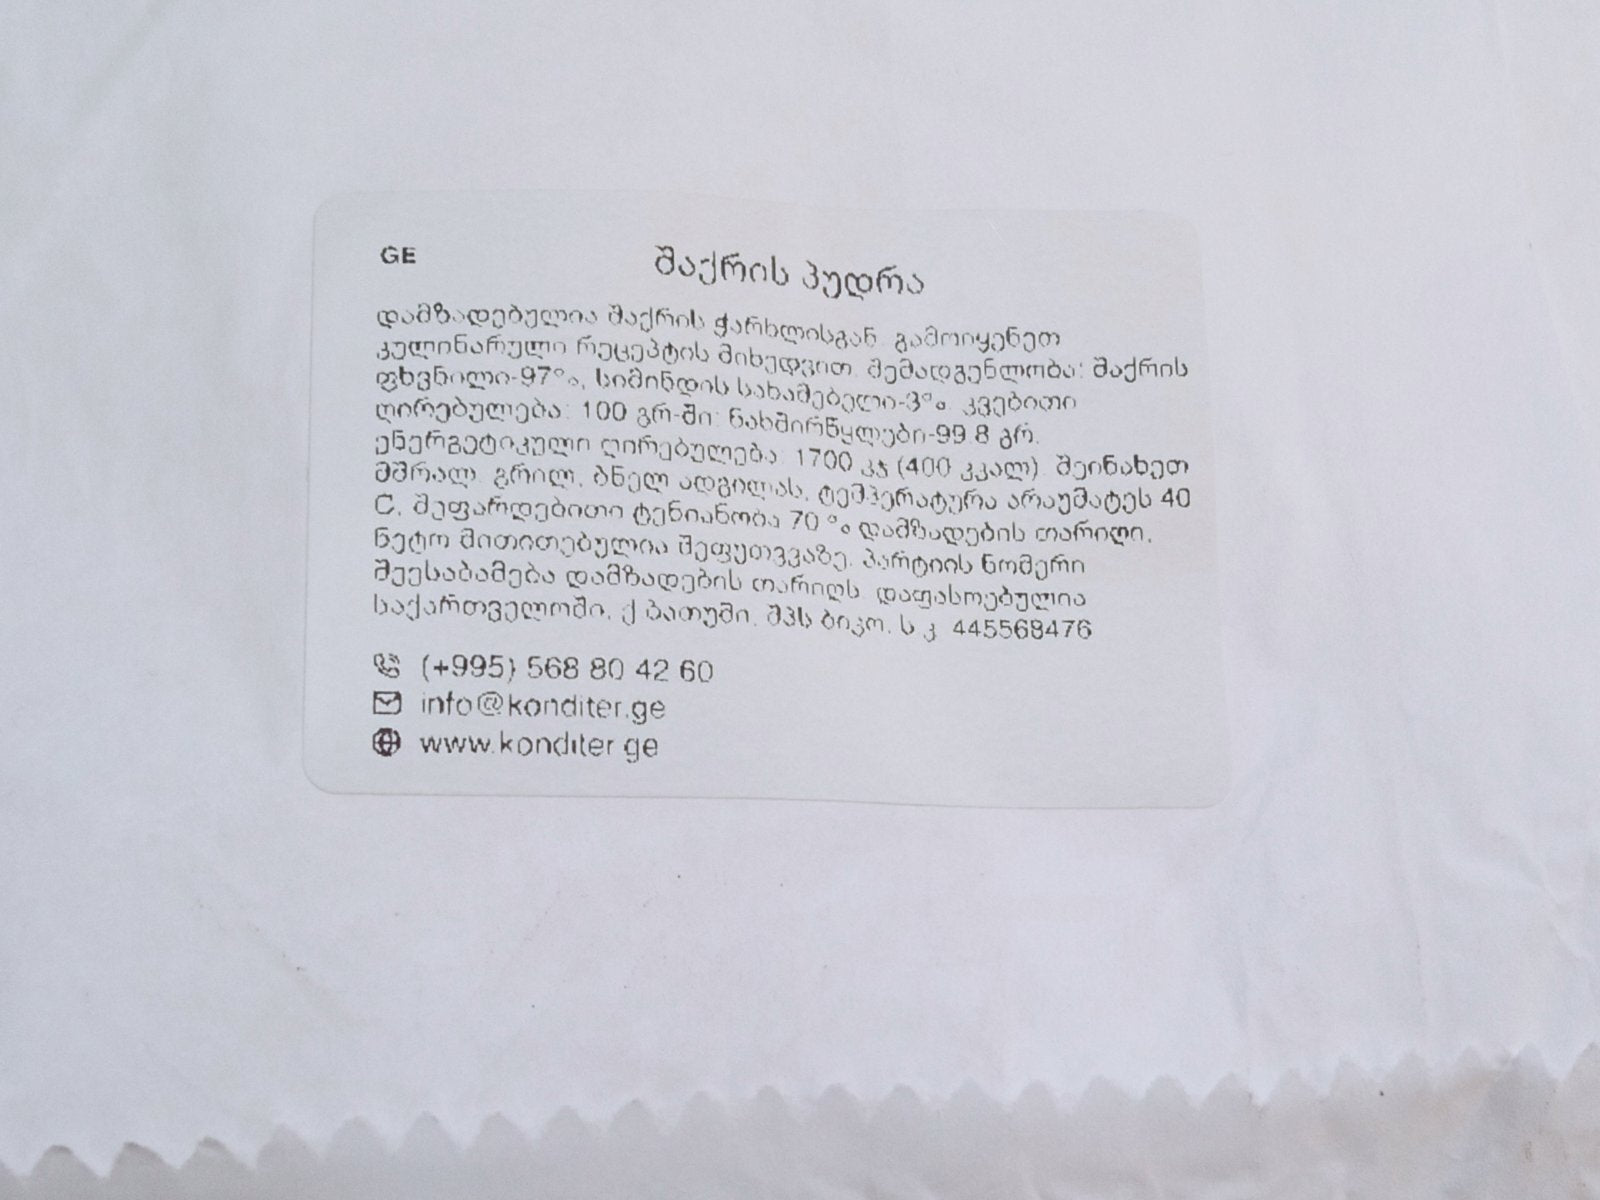 GE
შაქრის პუდრა
დამზადებულია შაქრის ჭარხლისგან. გამოიყენეთ
კულინარული რეცეპტის მიხედვით. შემადგენლობა: შაქრის
ფხვნილი-97%, სიმინდის სახამებელი-3%. კვებითი
ღირებულება: 100 გრ-ში: ნახშირწყლები-99.8 გრ.
ენერგეტიკული ღირებულება: 1700 კჯ (400 კკალ). შეინახეთ
მშრალ, გრილ, ბნელ ადგილას, ტემპერატურა არაუმატეს 40
C, შეფარდებითი ტენიანობა 70 % დამზადების თარიღი,
ნეტო მითითებულია შეფუთვაზე. პარტიის ნომერი
შეესაბამება დამზადების თარიღს. დაფასოებულია
საქართველოში, ქ ბათუმი, შპს ბიკო, ს კ 445568476
(+995) 568 80 42 60
info@konditer.ge
www.konditer.ge